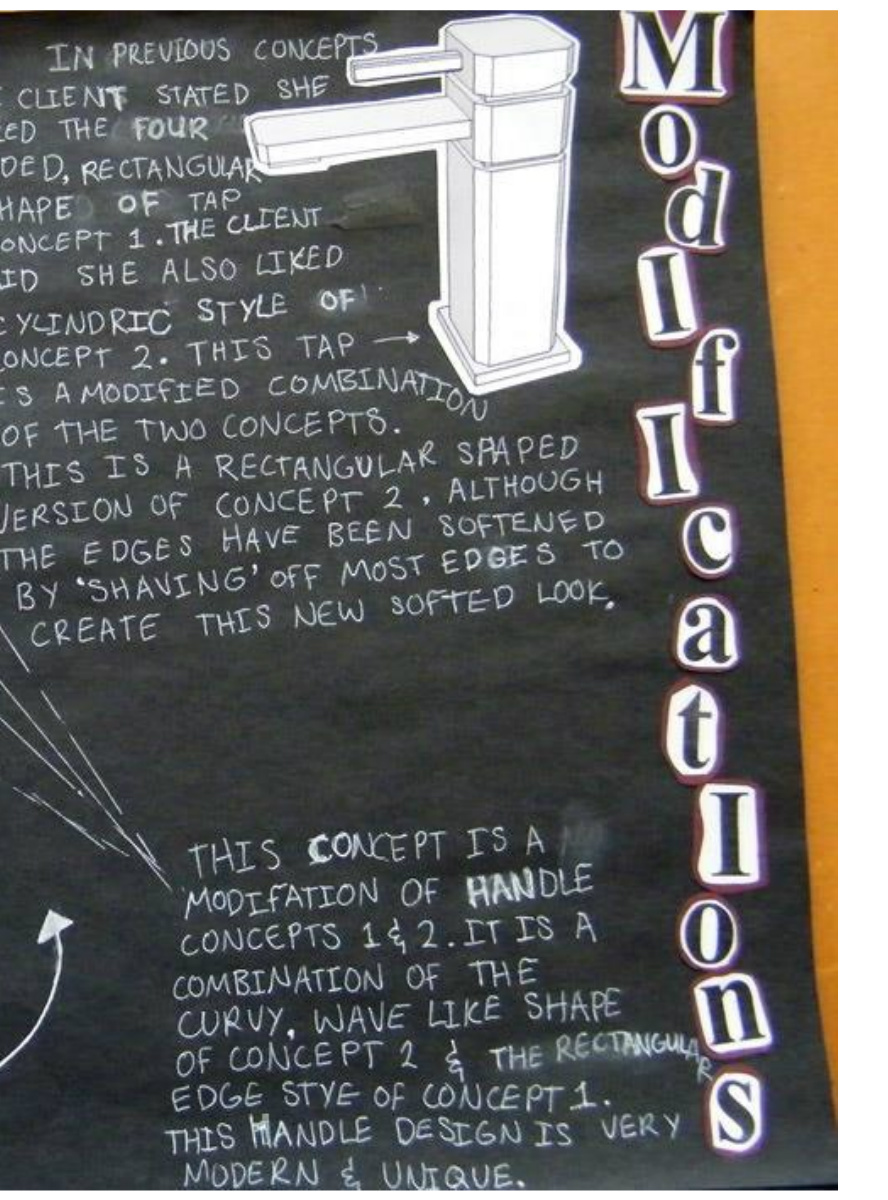 IN PREVIOUS CONCEPTS
CLIENT STATED SHE
THE FOUR
RECTANGULAR
OF TAP
1. THE CLIENT
SHE ALSO LIKED
CYLINDRIC STYLE OF
2. THIS TAP →
IS A MODIFIED COMBINATION
OF THE TWO CONCEPTS.
THIS IS A RECTANGULAR SPAPED
VERSION OF CONCEPT 2, ALTHOUGH
THE EDGES HAVE BEEN SOFTENED
BY 'SHAVING' OFF MOST EDGES TO
CREATE THIS NEW SOFTED LOOK.
THIS CONCEPT IS A
MODIFATION OF HANDLE
CONCEPTS 1 & 2. IT IS A
COMBINATION OF THE
CURVY, WAVE LIKE SHAPE
OF CONCEPT 2 & THE RECTANGULAR
EDGE STYE OF CONCEPT 1.
THIS HANDLE DESIGN IS VERY
MODERN & UNIQUE.
ModIfIcatIons